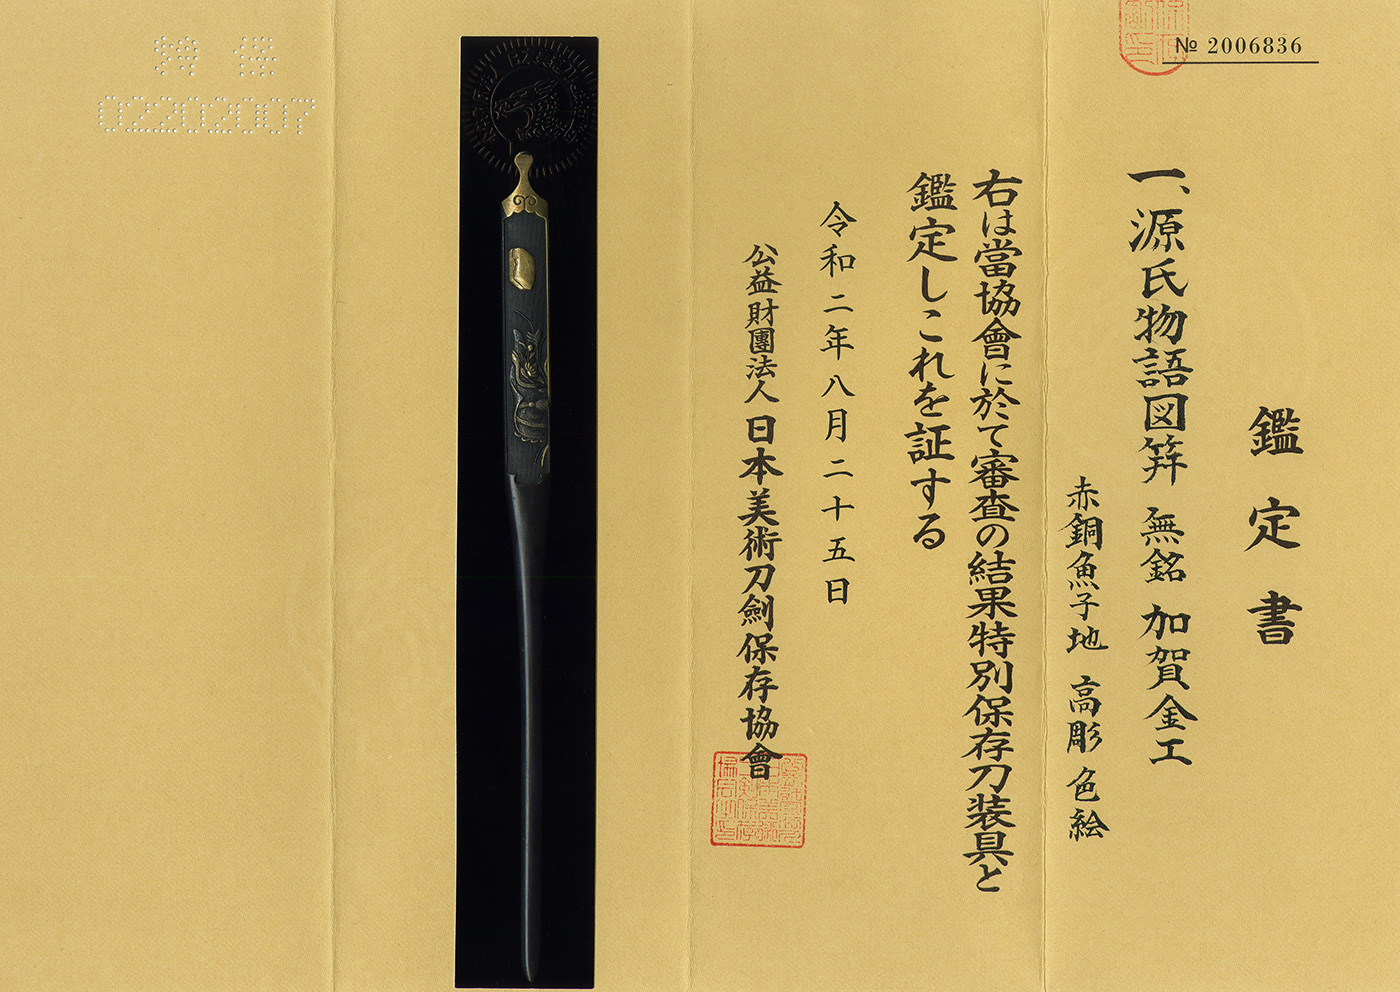 № 2006836
鑑定書
一、源氏物語図笄 無銘 加賀金工
赤銅魚子地 高彫 色絵
右は當協會に於て審査の結果特別保存刀装具と
鑑定しこれを証する
令和二年八月二十五日
公益財團法人 日本美術刀劍保存協會
02202007